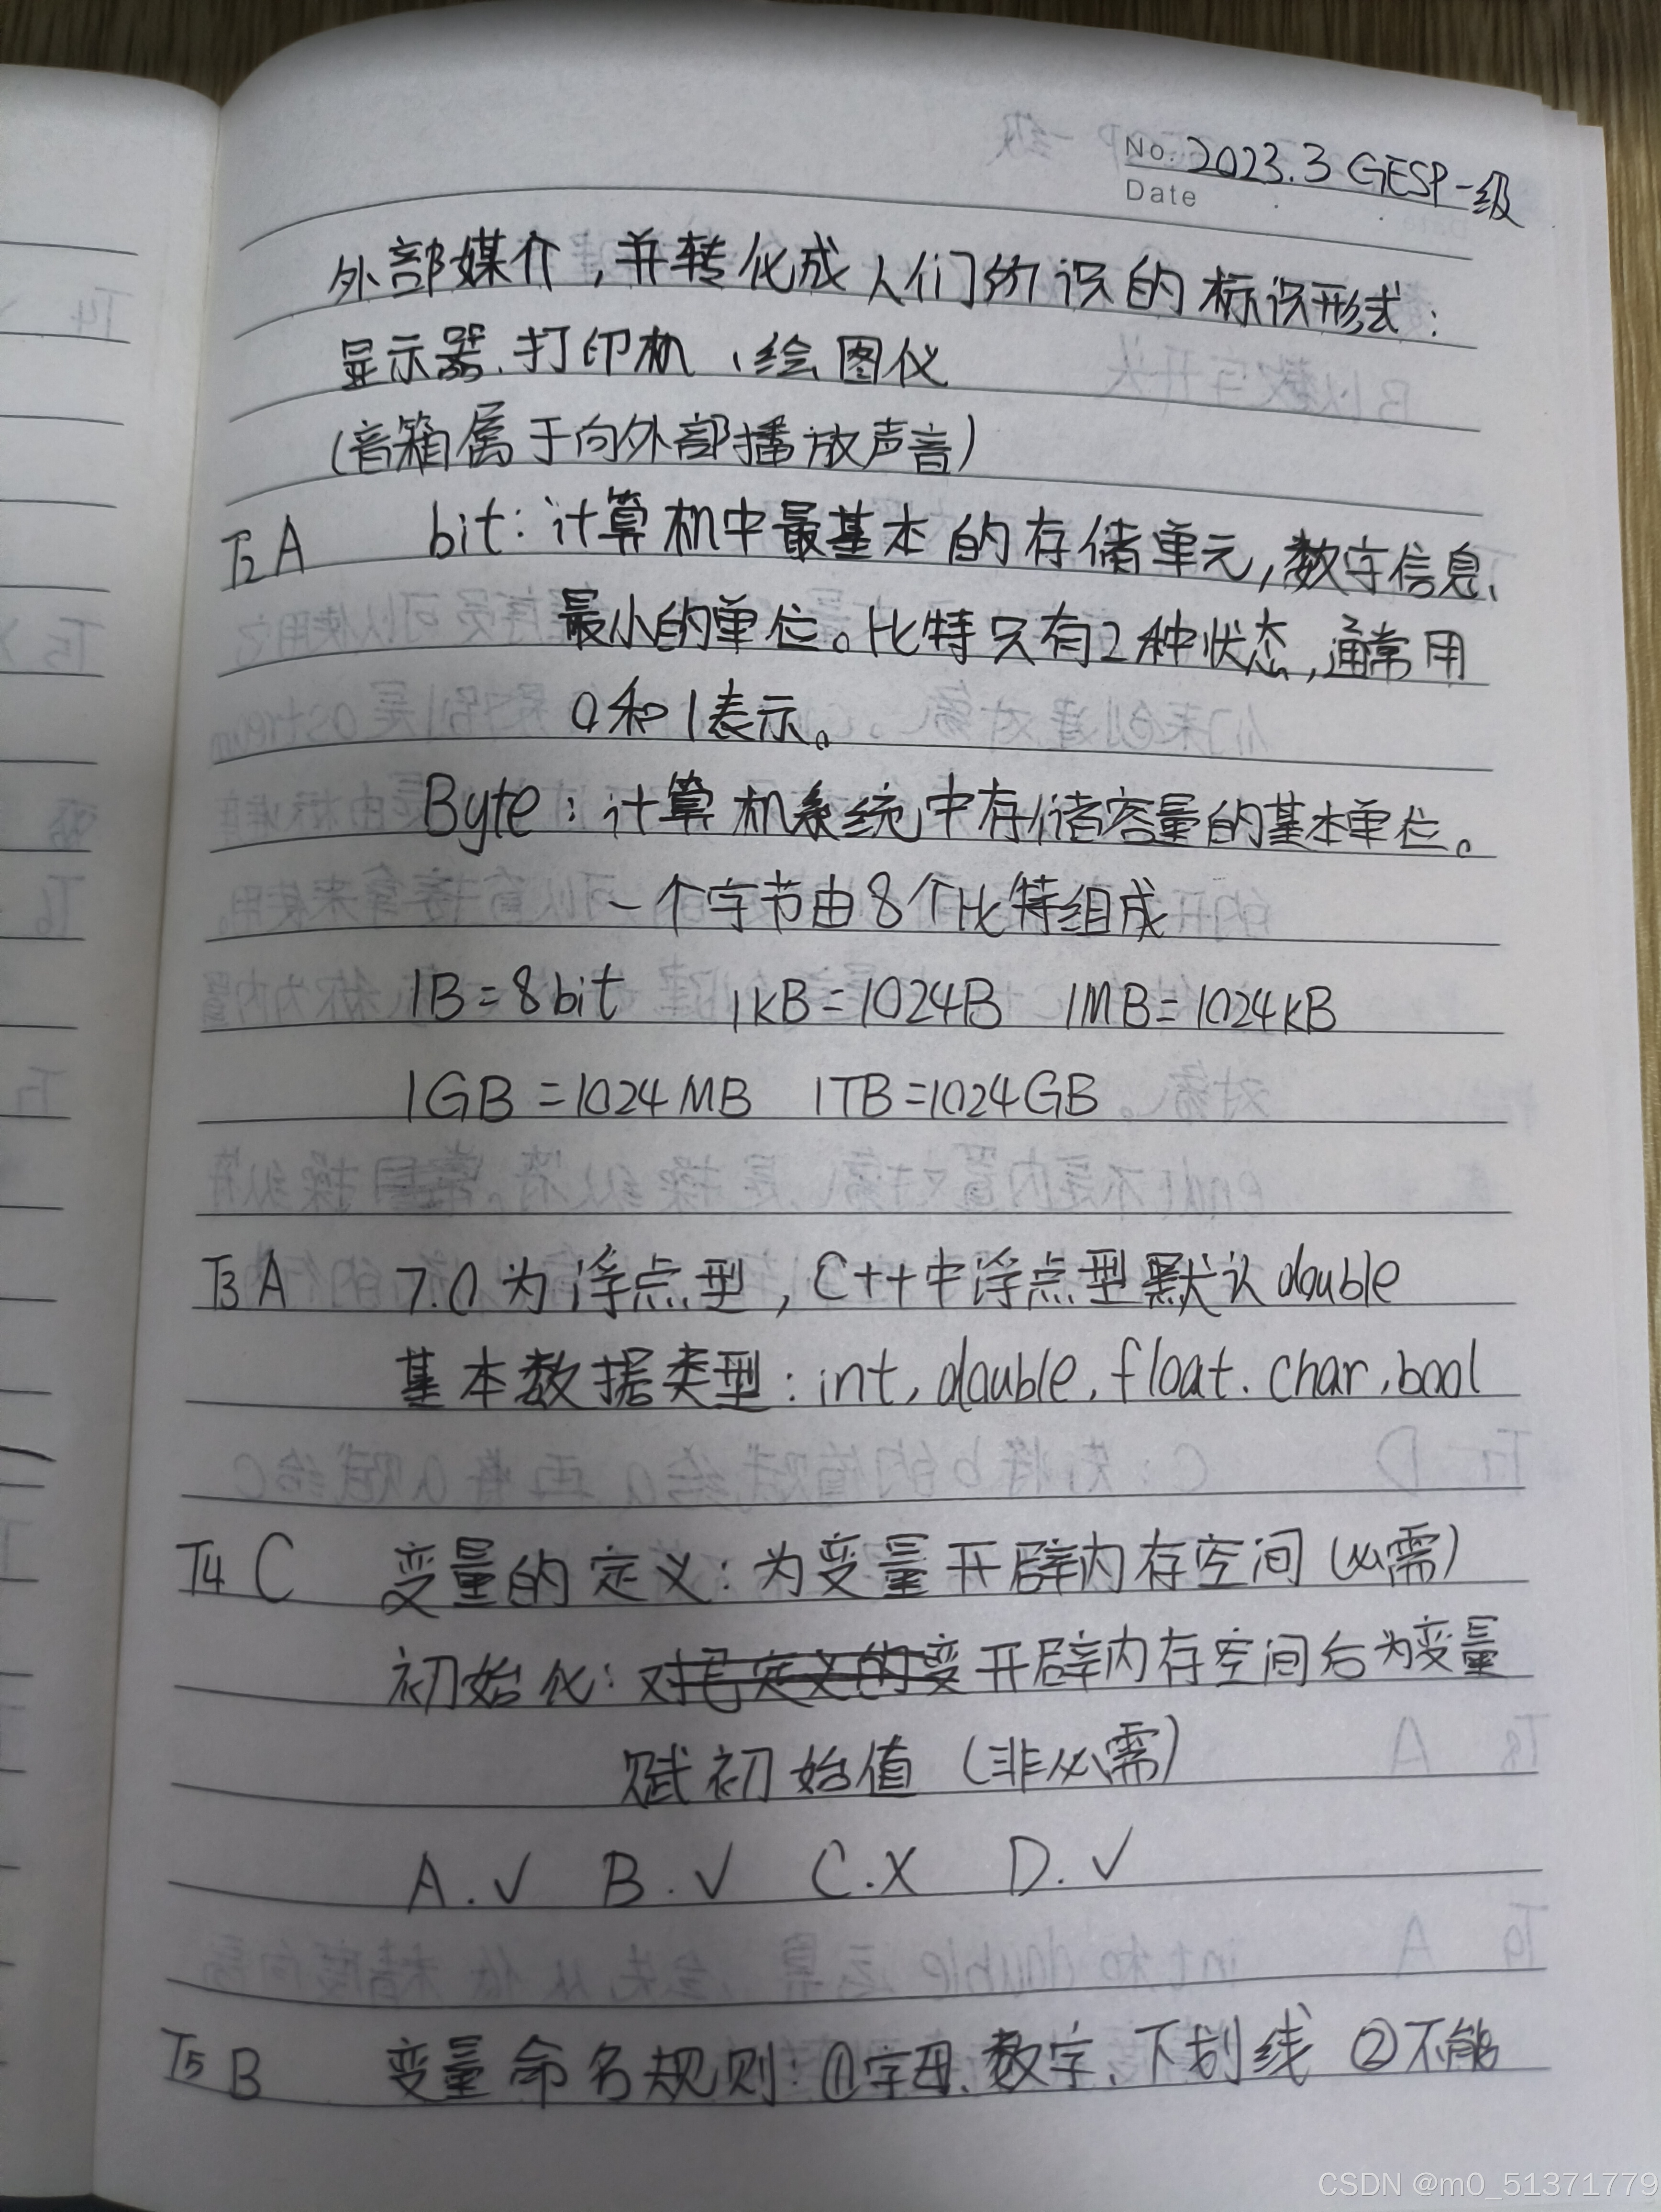 No. 2023.3 GESP一级
Date
外部媒介，并转化成人们所识的标识形式：
显示器、打印机、绘图仪
（音箱属于向外部播放声音）
T2 A bit：计算机中最基本的存储单元，数字信息、
最小的单位。比特只有2种状态，通常用
0和1表示。
Byte：计算机系统中存储容量的基本单位。
一个字节由8个比特组成
1B=8bit 1KB=1024B 1MB=1024KB
1GB=1024MB 1TB=1024GB
T3 A 7.0为浮点型，C++中浮点型默认double
基本数据类型：int、double、float、char、bool
T4 C 变量的定义：为变量开辟内存空间（必需）
初始化：开辟内存空间后为变量
赋初始值（非必需）
A.√ B.√ C.X D.√
T5 B 变量命名规则：①字母、数字、下划线 ②不能
CSDN @m0_51371779